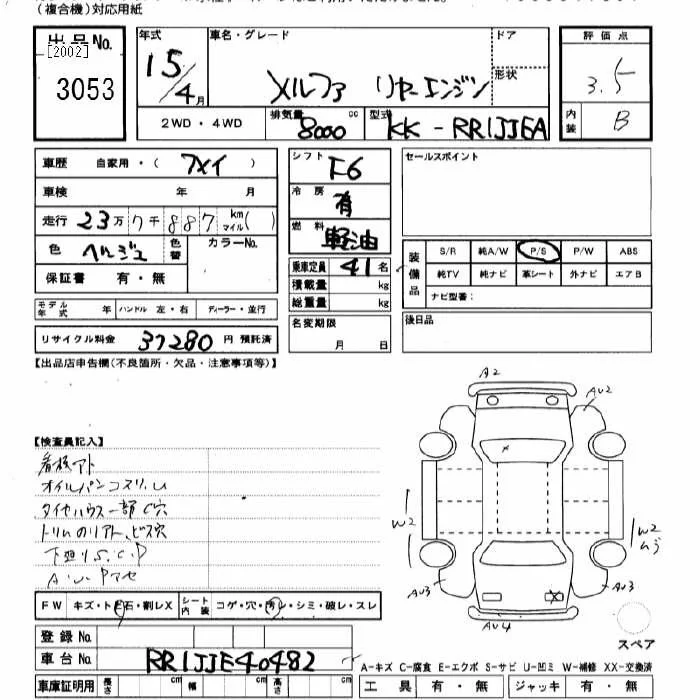 (複合機)対応用紙
出品No.
[2002]
3053
年式
15/4月
車名・グレード
メルファ リヤーエンジン
ドア
形状
評価点
3.5
内装
B
2WD・4WD
排気量
8000
cc
型式
KK-RR1JJEA
車歴 自家用・( アメイ )
車検 年 月
走行 23万 7千 887 km マイル( )
色 ベルジュ 色替 カラーNo.
保証書 有・無
モデル年式 年 ハンドル 左・右 ディーラー・並行
リサイクル料金 37280 円 預託済
シフト F6
冷房 有
燃料 軽油
乗車定員 41 名
積載量 kg
総重量 kg
名変期限
月 日
セールスポイント
装備品
S/R 純A/W P/S P/W ABS
純TV 純ナビ 革シート 外ナビ エアB
ナビ型番:
後日品
【出品店申告欄(不良箇所・欠品・注意事項等)】
【検査員記入】
看板アト
オイルパンコスリ、U
タイヤハウス一部C穴
トリムのリアト、ビス穴
下廻りS.C.P
A.U.Pアセ
A2
AU2
AU2
W2
W2
ムラ
AU3
AU3
AU4
スペア
FW キズ・トビ石・割レX シート内装 コゲ・穴・汚レ・シミ・破レ・スレ
登録No.
車台No. RR1JJE40482
A-キズ C-腐食 E-エクボ S-サビ U-凹ミ W-補修 XX-交換済
車庫証明用 長さ cm 幅 cm 高さ cm
工具 有・無 ジャッキ 有・無